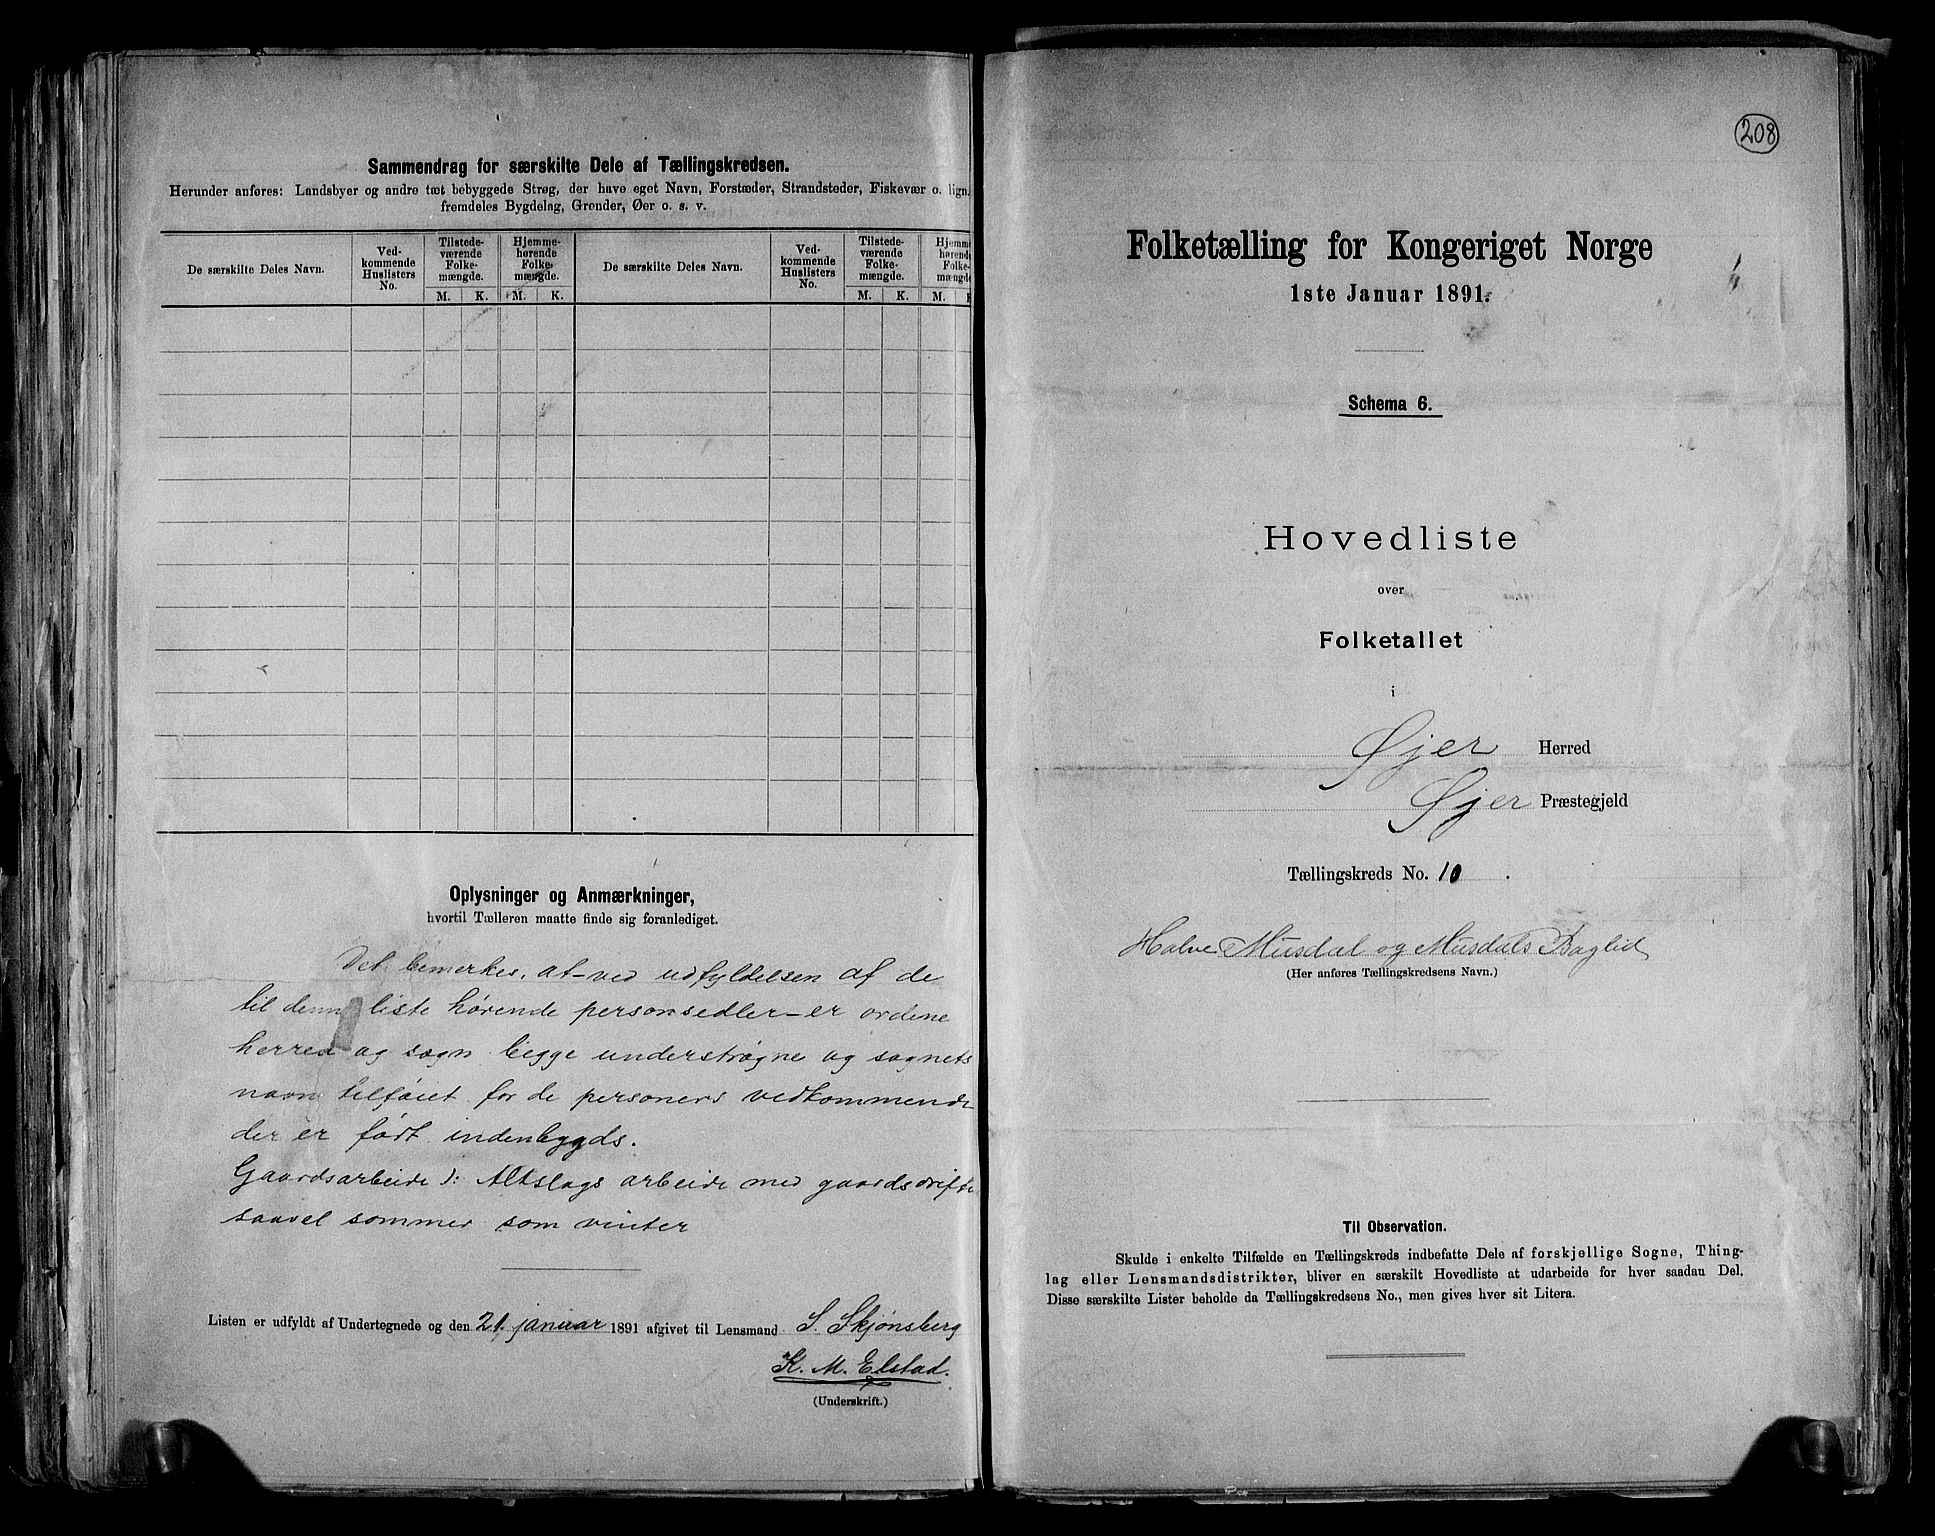 Sammendrag for særskilte Dele af Tællingskredsen.
Herunder anføres: Landsbyer og andre tæt bebyggede Strøg, der have eget Navn, Forstæder, Strandsteder, Fiskevær o. lign.
fremdeles Bygdelag, Grender, Øer o. s. v.
De særskilte Deles Navn.
Ved-
kommende
Huslisters
No.
Tilstede-
værende
Folke-
mængde.
M. K.
Hjemme-
hørende
Folke-
mængde.
M. K.
De særskilte Deles Navn.
Ved-
kommende
Huslisters
No.
Tilstede-
værende
Folke-
mængde.
M. K.
Hjemme
hørende
Folke-
mængde
M. K
Oplysninger og Anmærkninger,
hvortil Tælleren maatte finde sig foranlediget.
Det bemerkes, at ved udfyldelsen af de
til denne liste hørende personsedler er ordene
herred og sogn begge understrøgne og sognets
navn tilføiet for de personers vedkommende
der er født indenbygds.
Gaardsarbeide ): Altslags arbeide med gaardsdrift
saavel sommer som vinter
Listen er udfyldt af Undertegnede og den 21. januar 1891 afgivet til Lensmand S. Skjønsberg
K. M. Elstad.
(Underskrift.)
208
Folketælling for Kongeriget Norge
1ste Januar 1891.
Schema 6.
Hovedliste
over
Folketallet
i
Øjer Herred
Øjer Præstegjeld
Tællingskreds No. 10.
Halve Musdal og Musdals Baglid
(Her anføres Tællingskredsens Navn.)
Til Observation.
Skulde i enkelte Tilfælde en Tællingskreds indbefatte Dele af forskjellige Sogne, Thing-
lag eller Lensmandsdistrikter, bliver en særskilt Hovedliste at udarbeide for hver saadan Del.
Disse særskilte Lister beholde da Tællingskredsens No., men gives hver sit Litera.